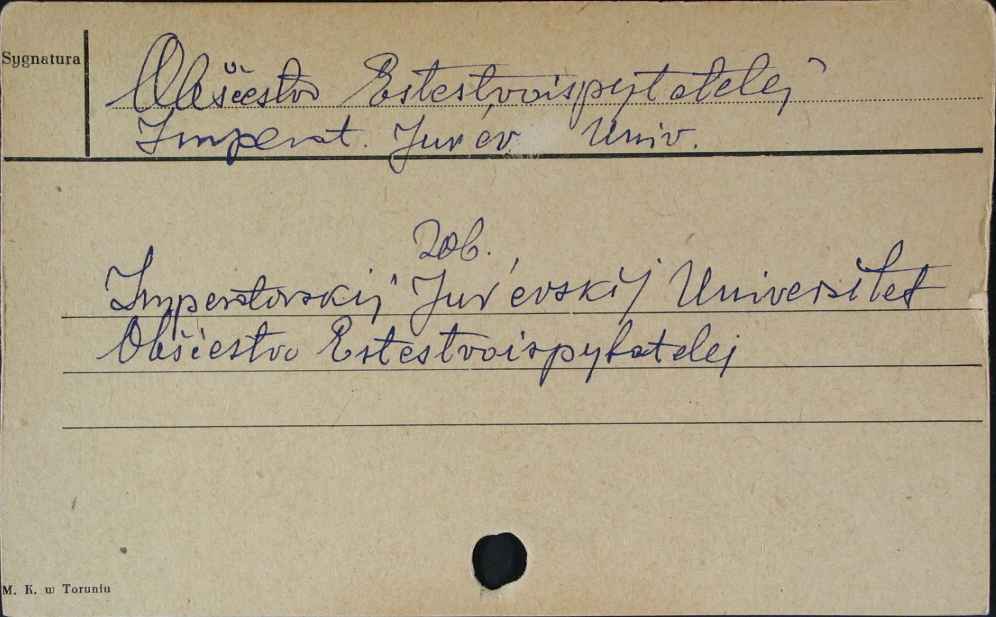 Sygnatura
Obščestvo Estestvoispytatelej
Imperat. Jur'ev. Univ.
zob.
Imperatorskij Jur'evskij Universitet
Obščestvo Estestvoispytatelej
M. K. w Toruniu